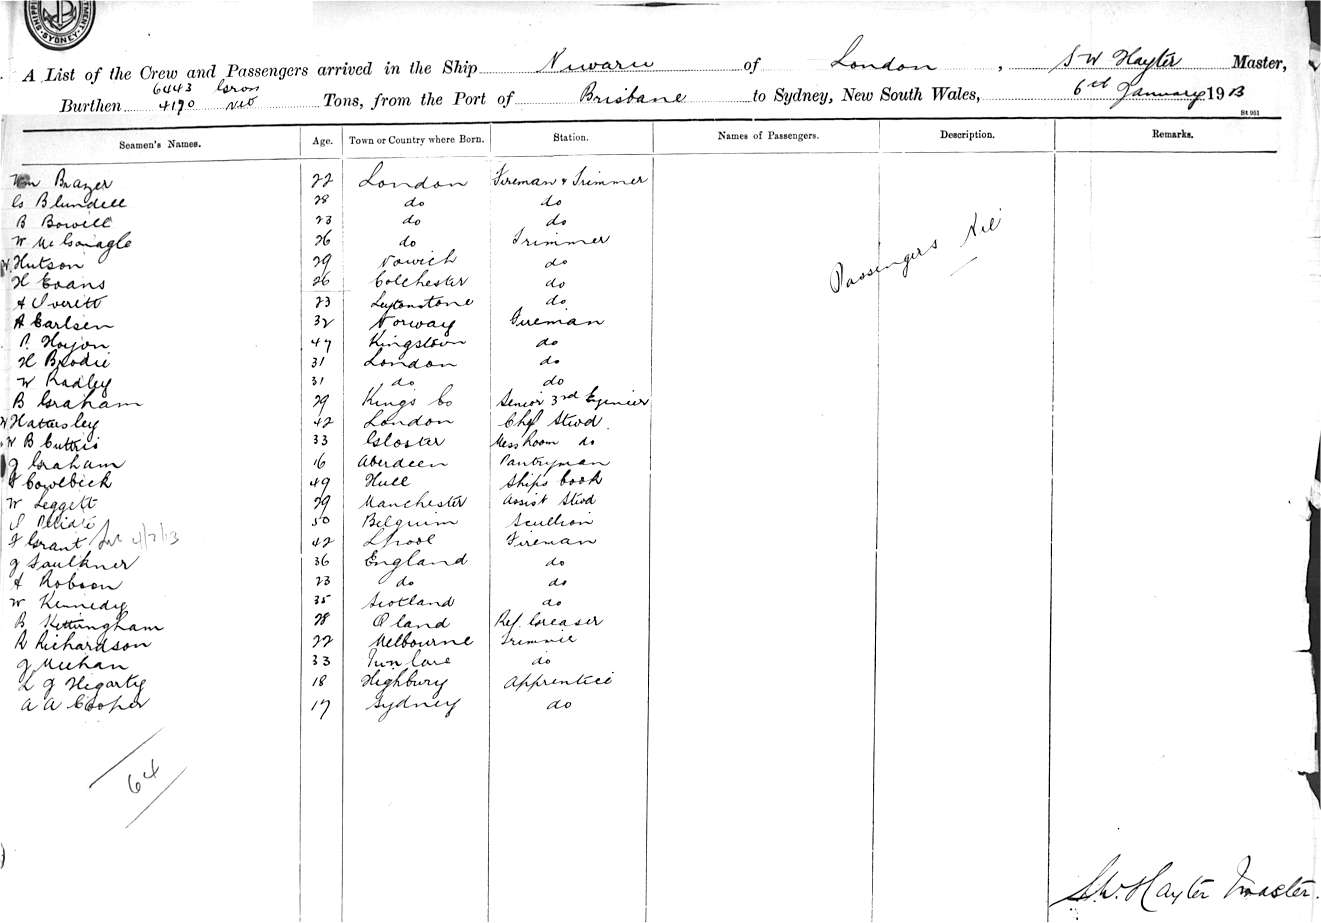 SHIPPI
TMENT
SYDNEY
A List of the Crew and Passengers arrived in the Ship of London, S W Hayter Master,
6443 Gross
Burthen 4190 Net Tons, from the Port of Brisbane to Sydney, New South Wales, 6th January 1913
St 961
Seamen's Names. Age. Town or Country where Born. Station. Names of Passengers. Description. Remarks.
Wm Brazer 22 London Fireman & Trimmer
G Blundell 28 do do
B Bowell 23 do do
W McGonagle 26 do Trimmer
W. Hutson 29 Norwich do
H Evans 26 Colchester do
A Everett 23 Leytonstone do
A Carlsen 32 Norway Fireman
P. 47 Kingstown do
H Brodie 31 London do
W Radley 31 do do
B Graham 29 Kings Co Senior 3rd Egenieer
W Hattersley 42 London Chf Stwd.
W B Guttris 33 Gloster Mess Room do
J Graham 16 Aberdeen Pantryman
49 Hull Ships Cook
W Leggett 29 Manchester Assist Stwd
50 Belguim Scullion
F Grant 4/7/13 42 Lpool Fireman
J Faulkner 36 England do
A Robson 23 do do
W Kennedy 35 Scotland do
B Kettringham 28 Oland Ref. Greaser
R Richardson 22 Melbourne Trimmer
J Meehan 33 do
L J Hegarty 18 Highbury Apprentice
A A Cooper 17 Sydney do
Passengers Nil
64
S.W. Hayter Master.